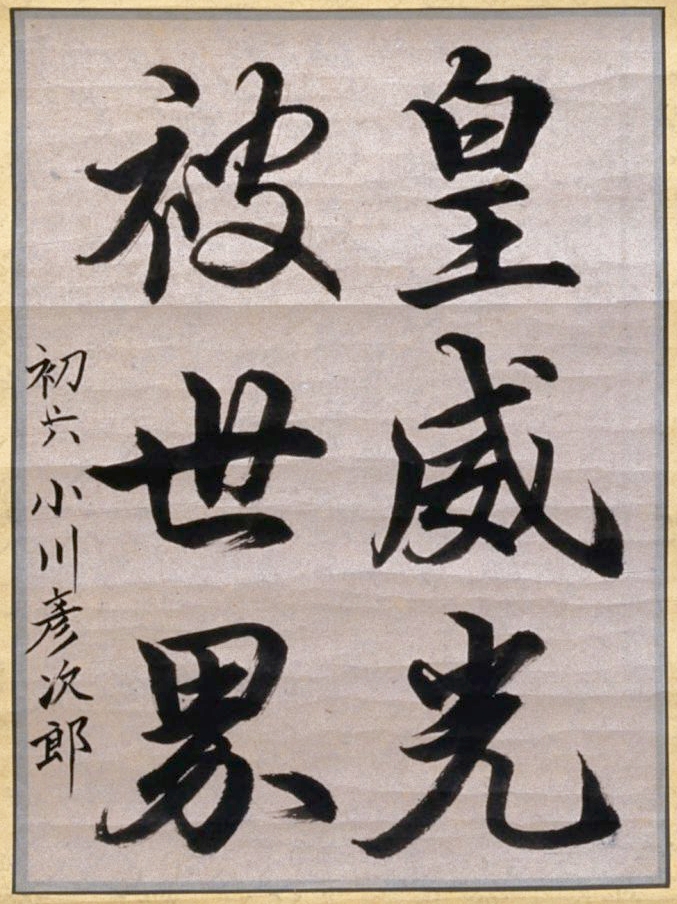 皇威光
被世界
初六 小川彦次郎